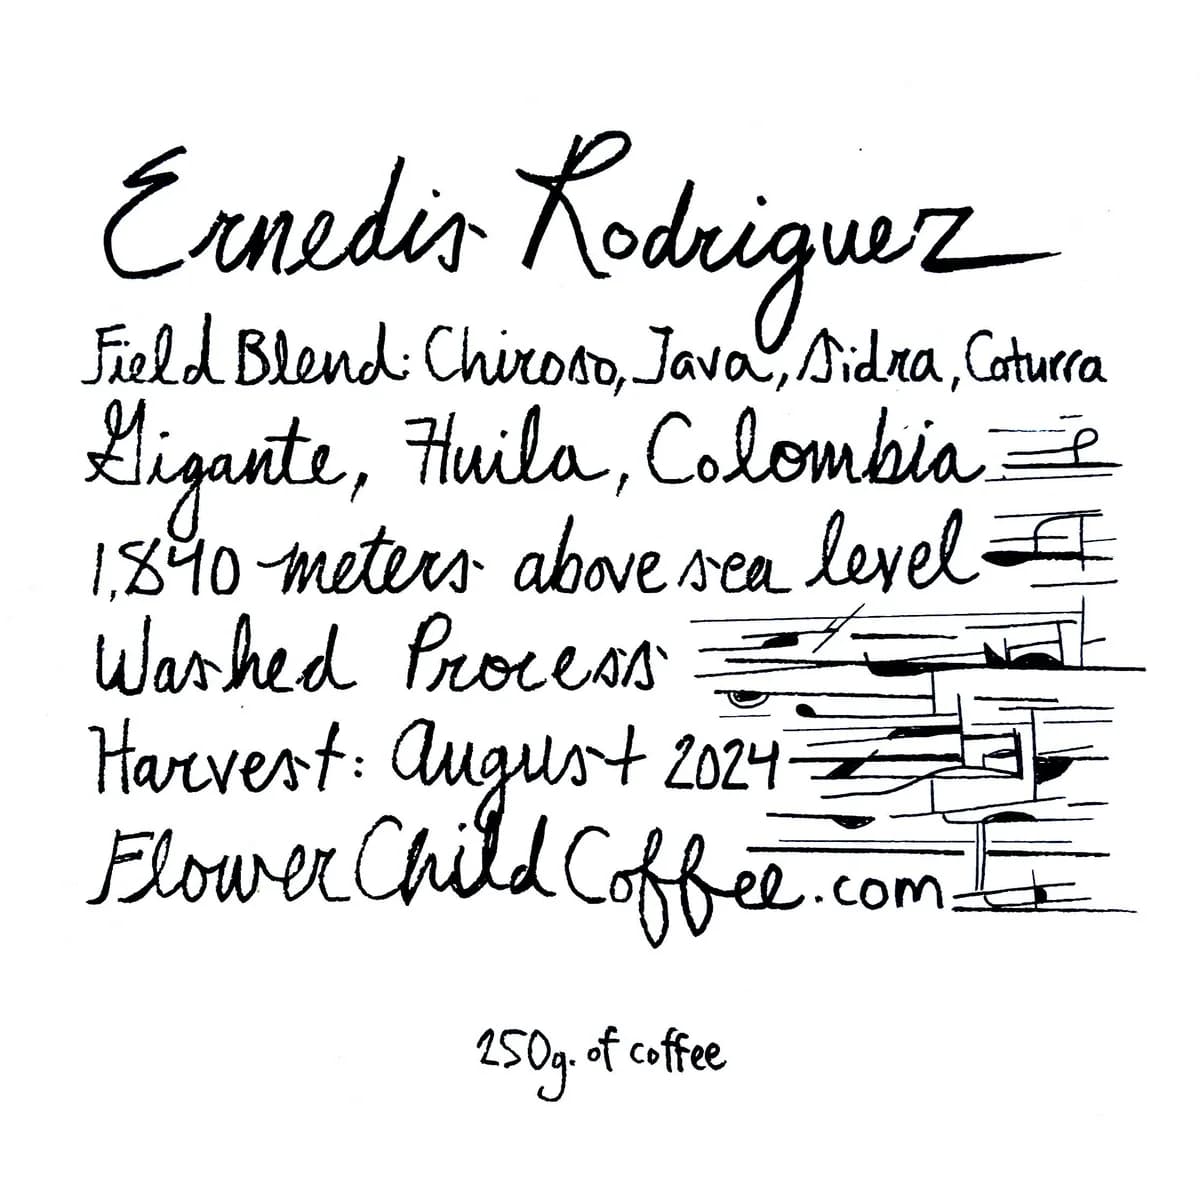 Ernedis Rodriguez
Field Blend: Chiroso, Java, Sidra, Caturra
Gigante, Huila, Colombia
1,840 meters above sea level
Washed Process
Harvest: August 2024
FlowerChildCoffee.com
250g. of coffee